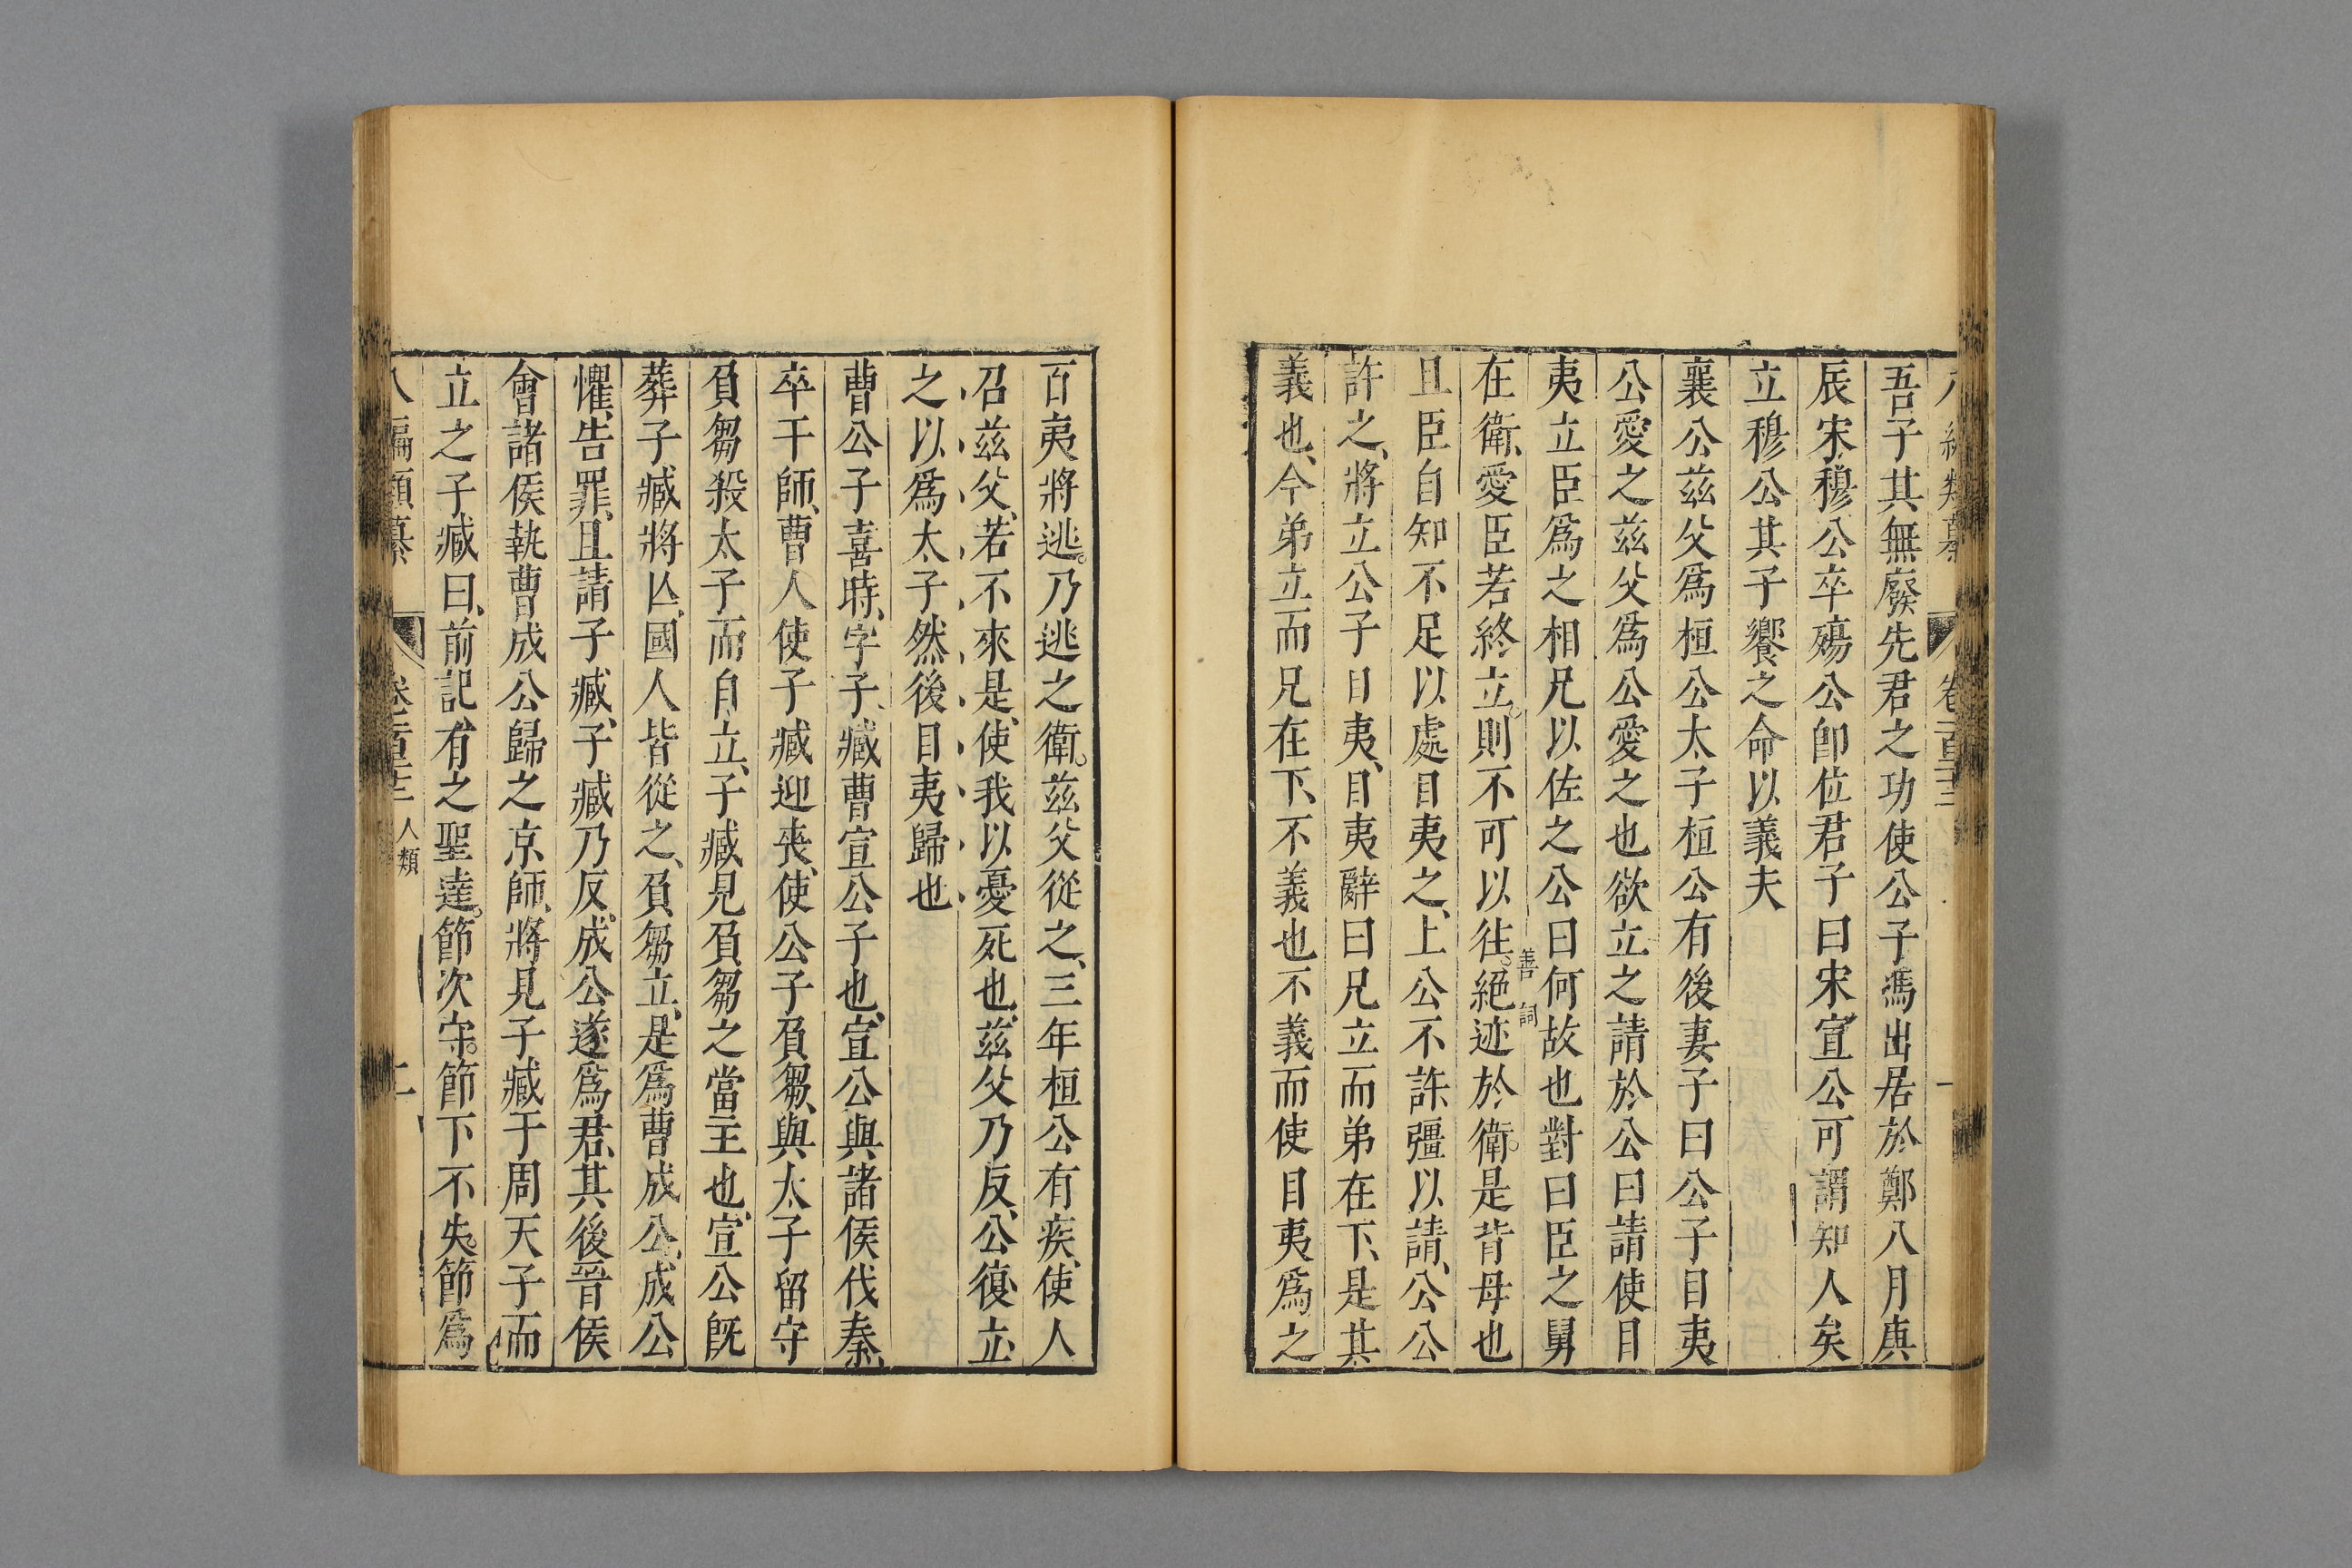 吾子其無廢先君之功使公子馮出居於鄭八月庚
辰宋穆公卒殤公卽位君子曰宋宣公可謂知人矣
立穆公其子饗之命以義夫
襄公茲父爲桓公太子桓公有後妻子曰公子目夷
公愛之茲父爲公愛之也欲立之請於公曰請使目
夷立臣爲之相兄以佐之公曰何故也對曰臣之舅
善詞
在衛、愛臣若終立。則不可以往。絕迹於衛。是背母也
且臣自知不足以處目夷之、上公不許彊以請、公公
許之、將立公子目夷、目夷辭曰兄立而弟在下、是其
義也、今弟立而兄在下、不義也不義而使目夷爲之
百夷將逃。乃逃之衛。茲父從之、三年桓公有疾、使人
召茲父、若不來是、使我以憂死也、茲父乃反、公復立
之以爲太子然後目夷歸也
曹公子喜時、字子臧曹宣公子也、宣公與諸侯伐秦、
卒于師、曹人使子臧迎喪、使公子負芻、與太子留守
負芻殺太子而自立、子臧見負芻之當主也、宣公旣
葬子臧將亾、國人皆從之、負芻立、是爲曹成公、成公
懼、告罪、且請子臧、子臧乃反、成公遂爲君、其後晉侯
會諸侯執曹成公歸之京師、將見子臧于周天子而
立之子臧曰、前記有之聖達。節次守。節下不失。節爲
人類
二